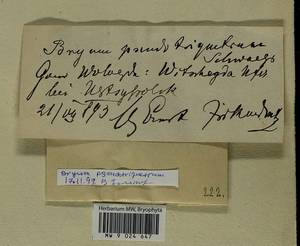 Bryum pseudotriquetrum
Schwaegr
Gouv Wologda: Witschegda Ufer
bei Ustsyssolsk
21/VII 893
Bryum pseudotriquetrum
222.
Herbarium MW, Bryophyta
MW 9 024 647